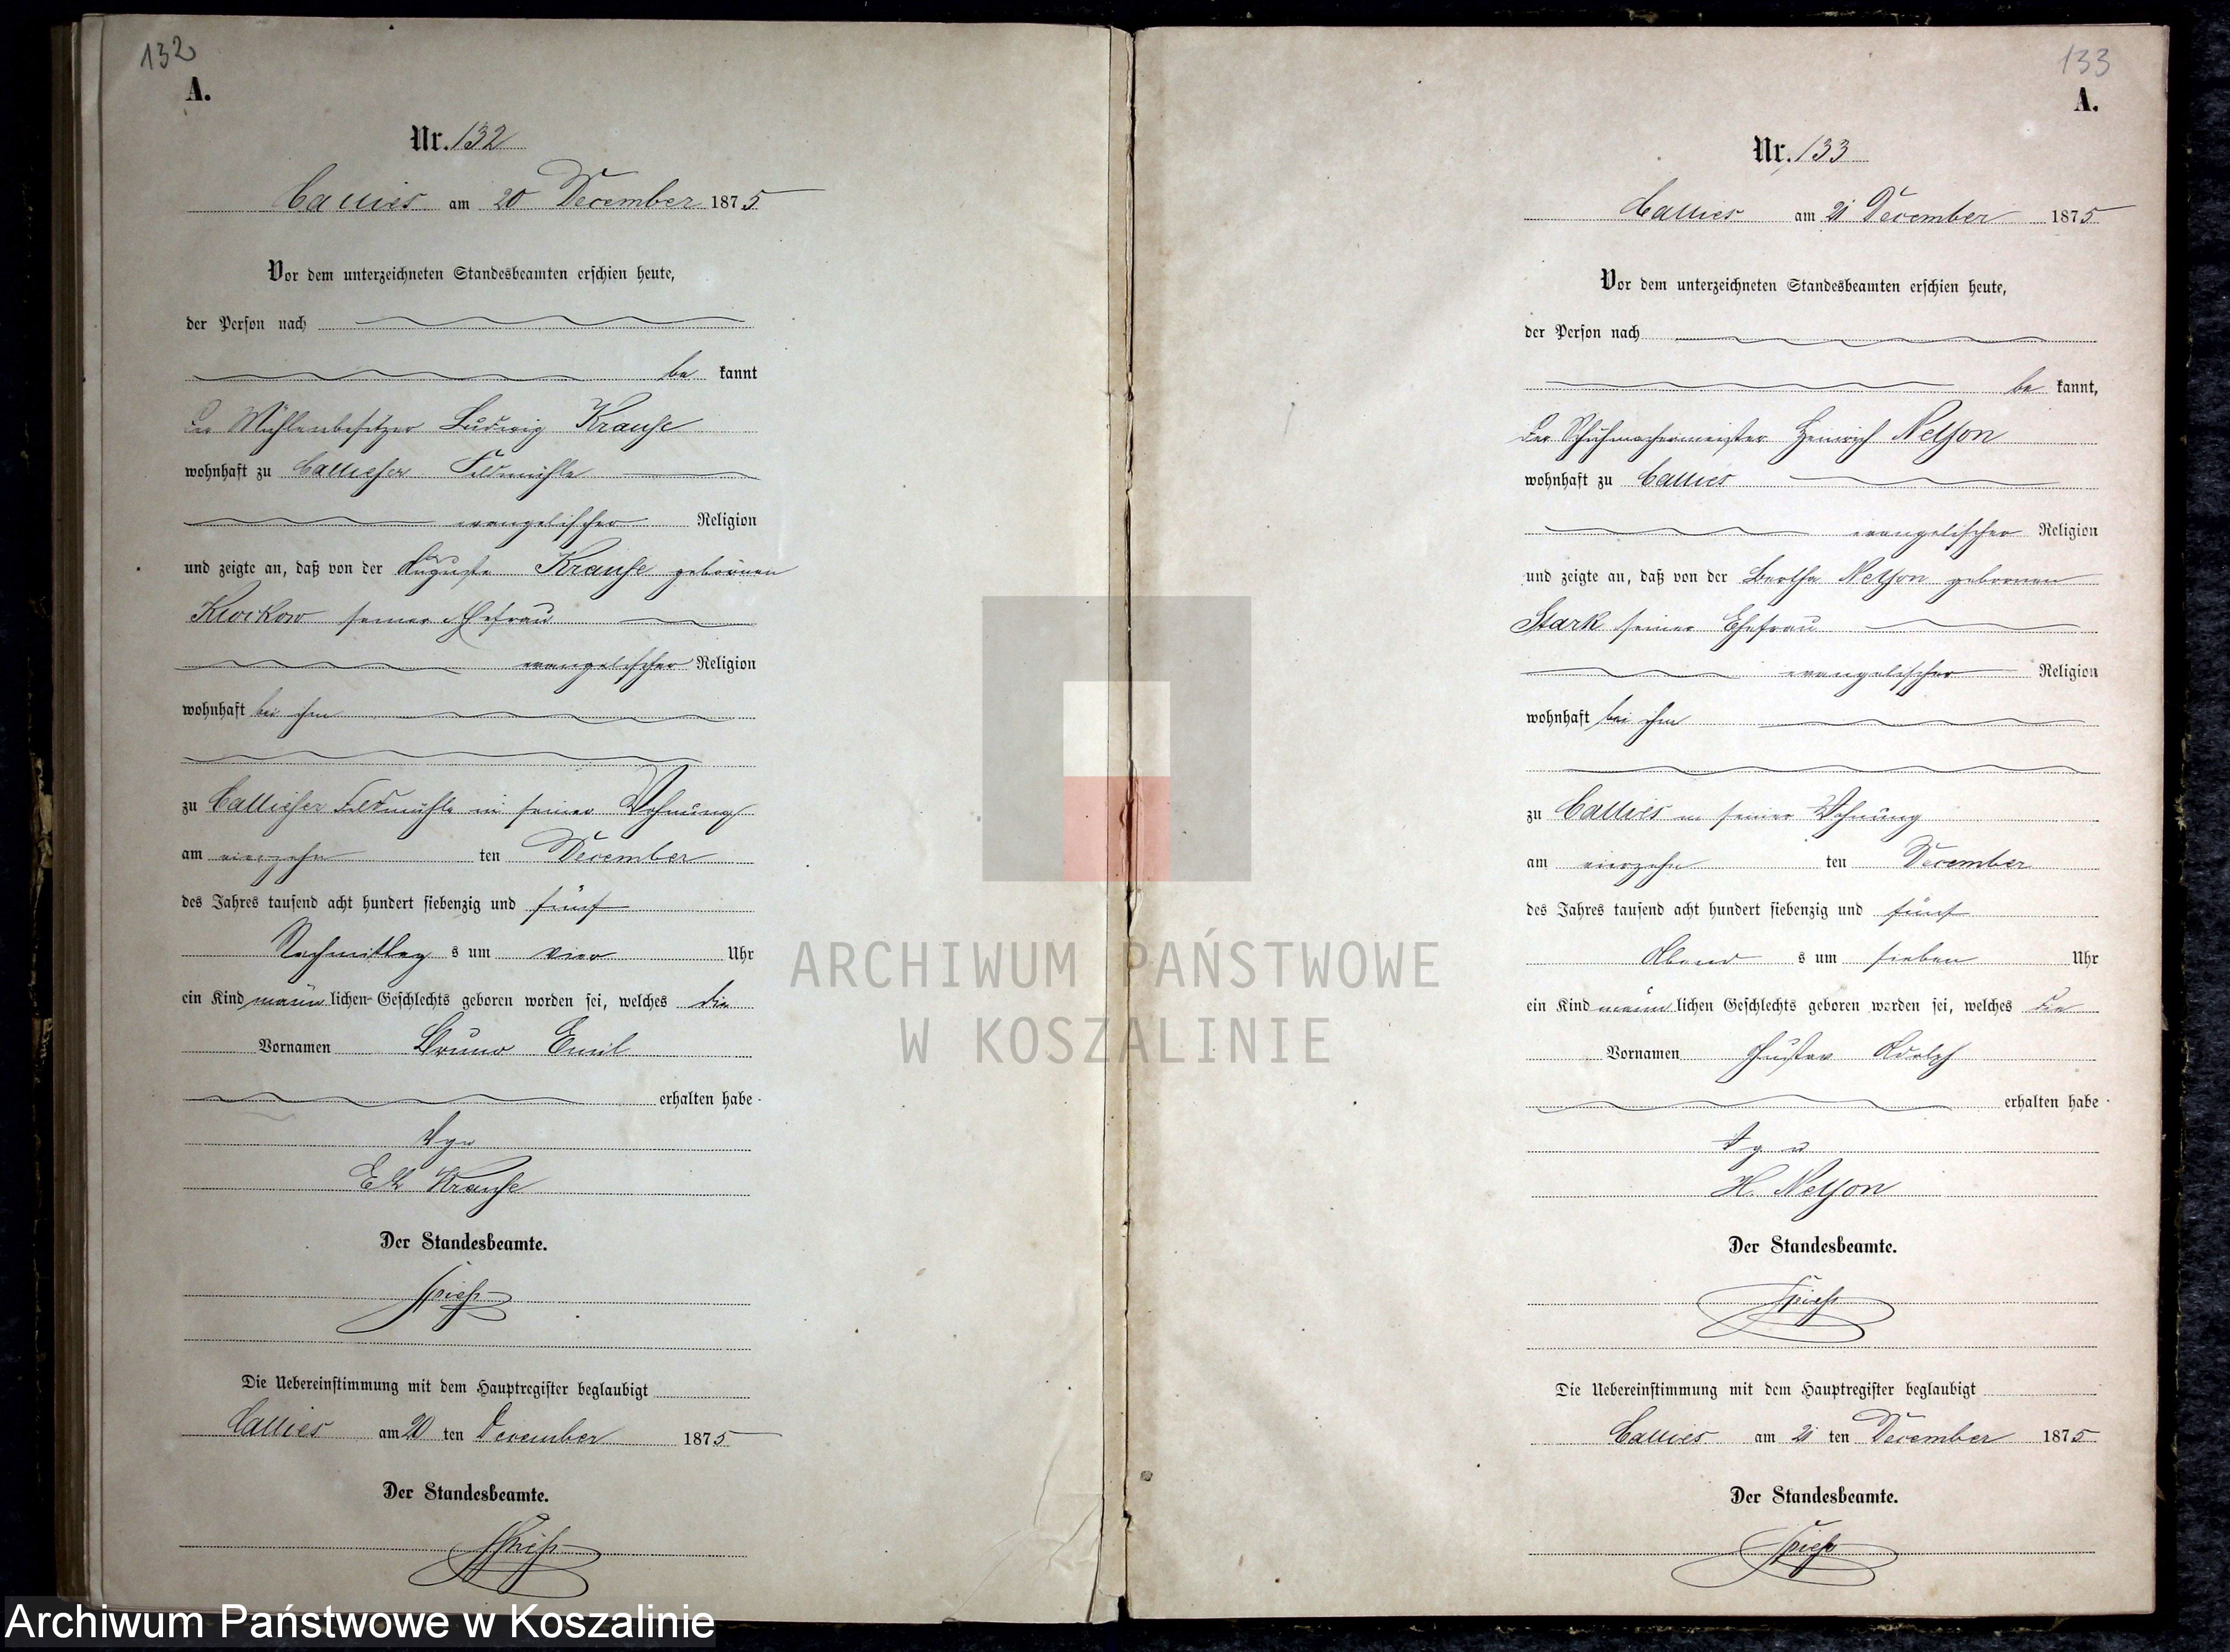 132
A.
Nr. 132
Callies am 20 December 1875
Vor dem unterzeichneten Standesbeamten erschien heute,
der Person nach
be kannt
der Mühlenbesitzer Ludwig Krause
wohnhaft zu Callieser Feldmühle
evangelischer Religion
und zeigte an, daß von der Auguste Krause gebornen
Klockow seiner Ehefrau
evangelischer Religion
wohnhaft bei ihm
zu Callieser Feldmühle in seiner Wohnung
am vierzehn ten December
des Jahres tausend acht hundert siebenzig und fünf
Nachmittag s um vier Uhr
ein Kind männ lichen Geschlechts geboren worden sei, welches die
Vornamen Bruno Emil
erhalten habe
Vgu
Krause
Der Standesbeamte.
Spieß
Die Uebereinstimmung mit dem Hauptregister beglaubigt
Callies am 20 ten December 1875
Der Standesbeamte.
Spieß
133
A.
Nr. 133
Callies am 21 December 1875
Vor dem unterzeichneten Standesbeamten erschien heute,
der Person nach
be kannt,
der Schuhmachermeister Heinrich Nelson
wohnhaft zu Callies
evangelischer Religion
und zeigte an, daß von der Bertha Nelson gebornen
Stark seiner Ehefrau
evangelischer Religion
wohnhaft bei ihm
zu Callies in seiner Wohnung
am vierzehn ten December
des Jahres tausend acht hundert siebenzig und fünf
Abend s um sieben Uhr
ein Kind männ lichen Geschlechts geboren worden sei, welches die
Vornamen Gustav Adolph
erhalten habe
V g u
H. Nelson
Der Standesbeamte.
Spieß
Die Uebereinstimmung mit dem Hauptregister beglaubigt
Callies am 21 ten December 1875
Der Standesbeamte.
Spieß
ARCHIWUM PAŃSTWOWE
W KOSZALINIE
Archiwum Państwowe w Koszalinie